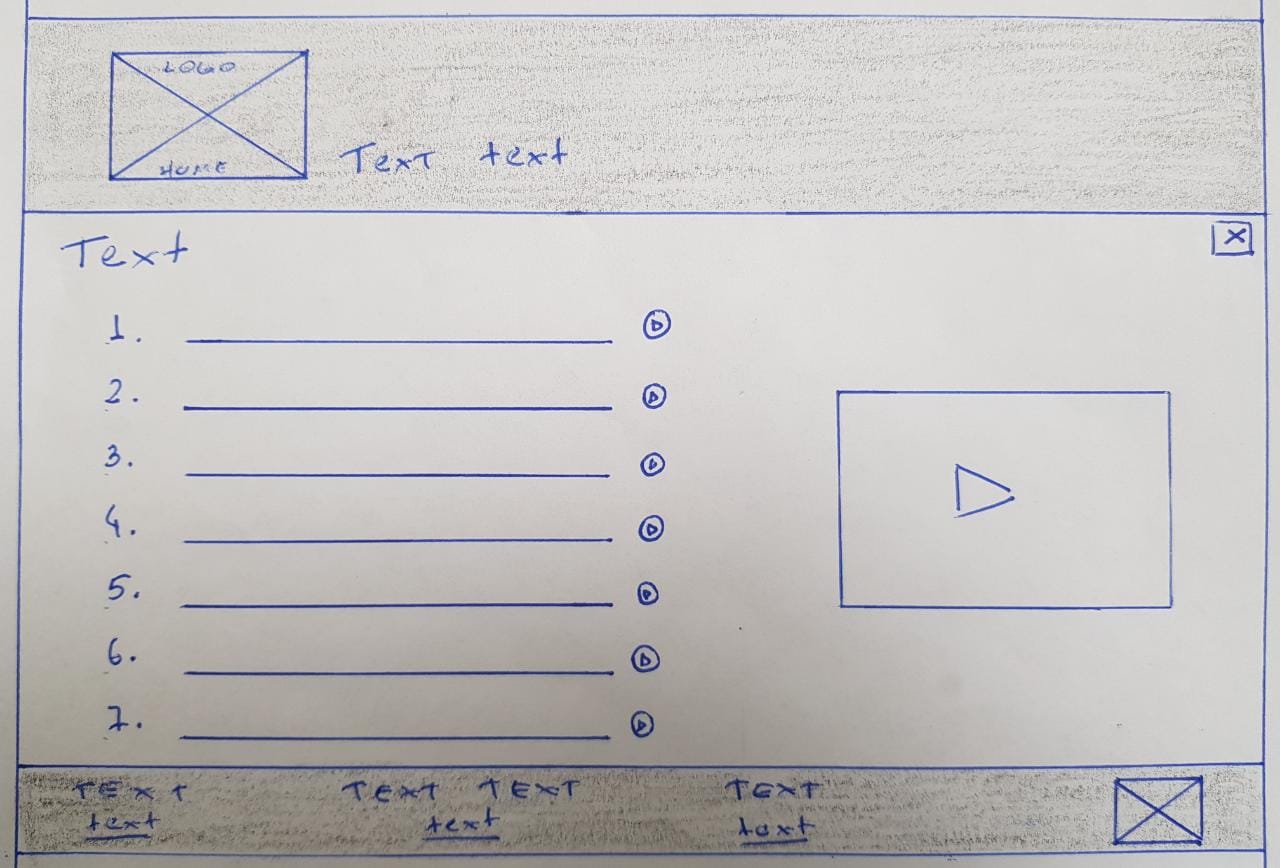 LOGO
HOME
Text text
Text
X
1.
2.
3.
4.
5.
6.
7.
TEXT TEXT TEXT TEXT
text text text